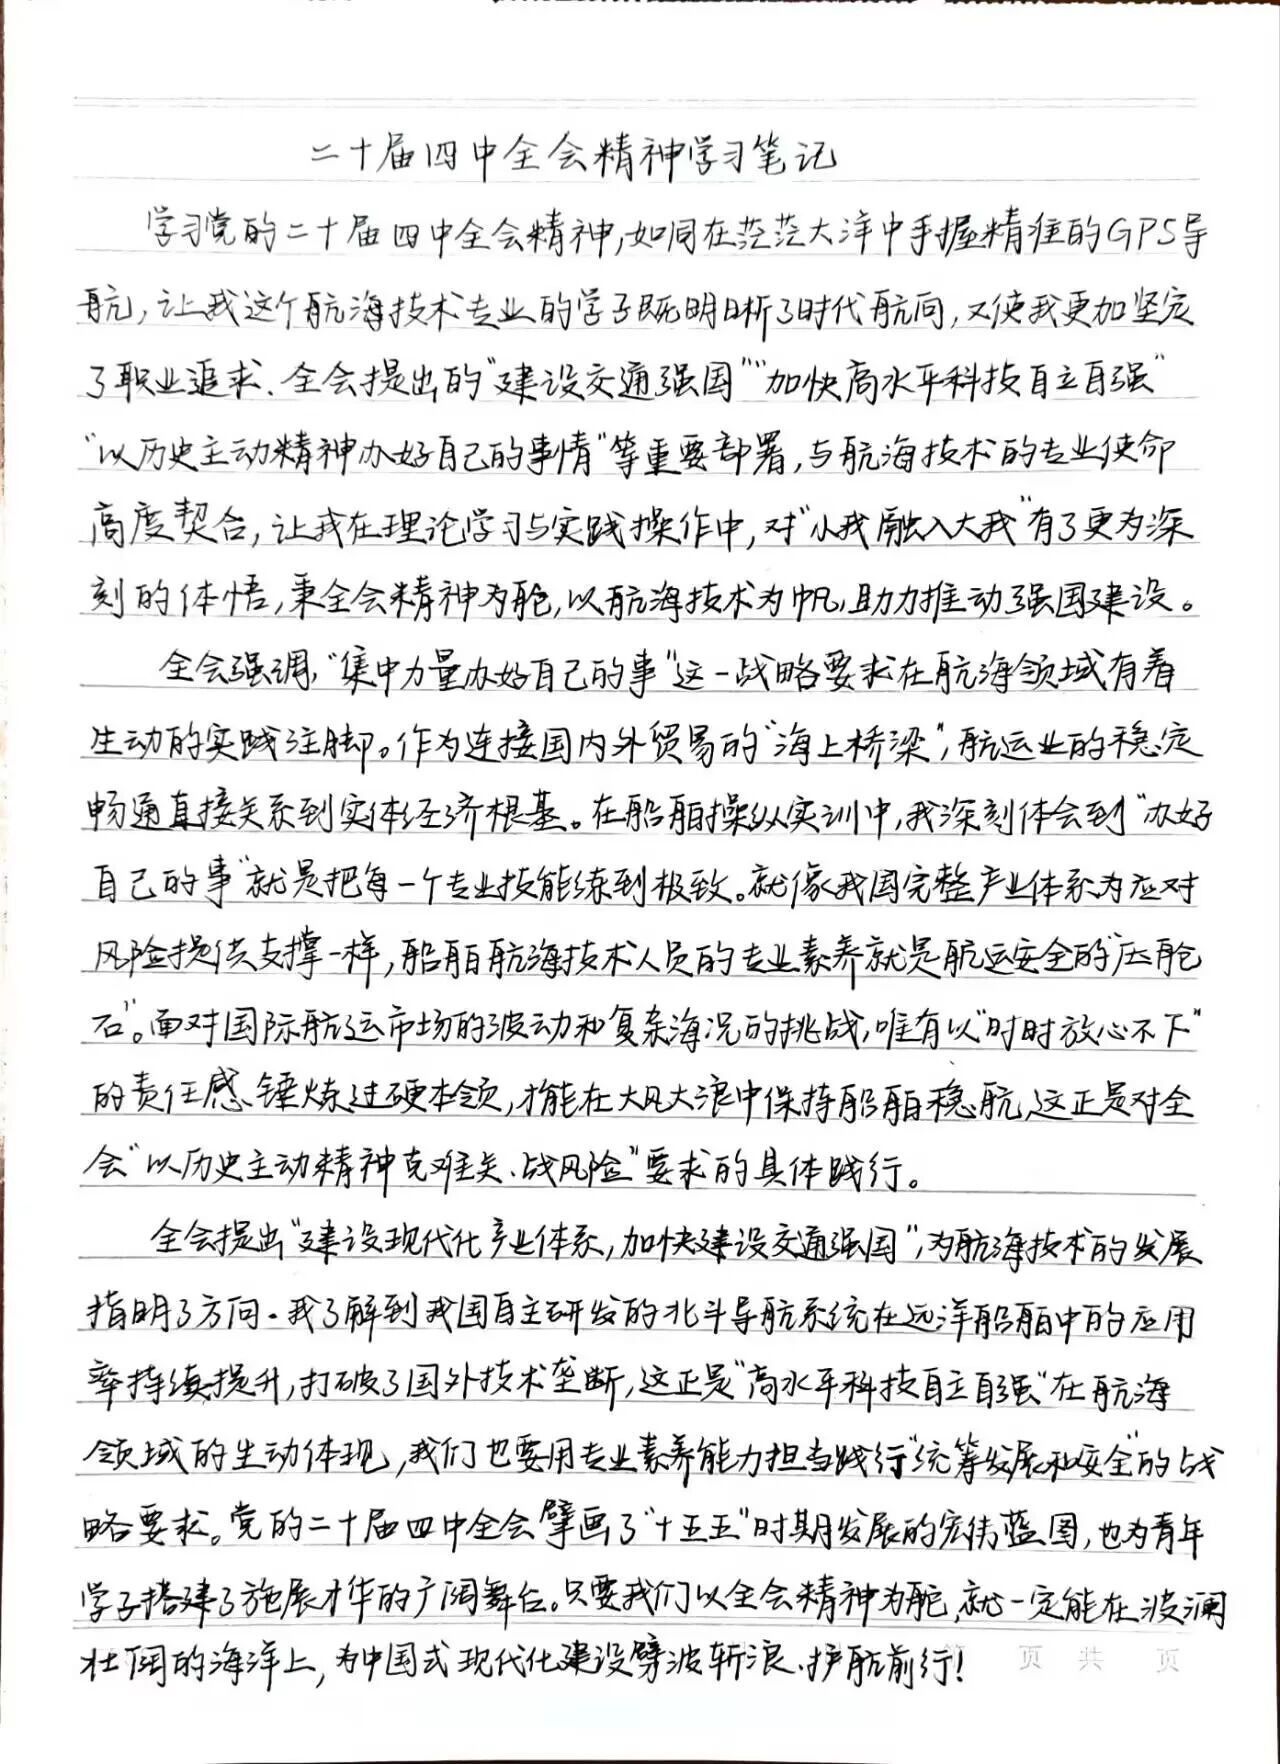 二十届四中全会精神学习笔记
学习党的二十届四中全会精神,如同在茫茫大洋中手握精准的GPS导
航,让我这个航海技术专业的学子既明晰了时代航向,又使我更加坚定
了职业追求.全会提出的“建设交通强国”“加快高水平科技自立自强”
“以历史主动精神办好自己的事情”等重要部署,与航海技术的专业使命
高度契合,让我在理论学习与实践操作中,对“小我融入大我”有了更为深
刻的体悟,秉全会精神为舵,以航海技术为帆,助力推动强国建设。
全会强调,“集中力量办好自己的事”这一战略要求在航海领域有着
生动的实践注脚。作为连接国内外贸易的“海上桥梁”,航运业的稳定
畅通直接关系到实体经济根基。在船舶操纵实训中,我深刻体会到“办好
自己的事”就是把每一个专业技能练到极致。就像我国完整产业体系为应对
风险提供支撑一样,船舶航海技术人员的专业素养就是航运安全的“压舱
石”。面对国际航运市场的波动和复杂海况的挑战,唯有以“时时放心不下”
的责任感、锤炼过硬本领,才能在大风大浪中保持船舶稳航,这正是对全
会“以历史主动精神克难关、战风险”要求的具体践行。
全会提出“建设现代化产业体系,加快建设交通强国”,为航海技术的发展
指明了方向.我了解到我国自主研发的北斗导航系统在远洋船舶中的应用
率持续提升,打破了国外技术垄断,这正是“高水平科技自立自强”在航海
领域的生动体现,我们也要用专业素养能力担当践行“统筹发展和安全”的战
略要求。党的二十届四中全会擘画了“十五五”时期发展的宏伟蓝图,也为青年
学子搭建了施展才华的广阔舞台。只要我们以全会精神为舵,就一定能在波澜
壮阔的海洋上,为中国式现代化建设劈波斩浪、护航前行!
第 页 共 页